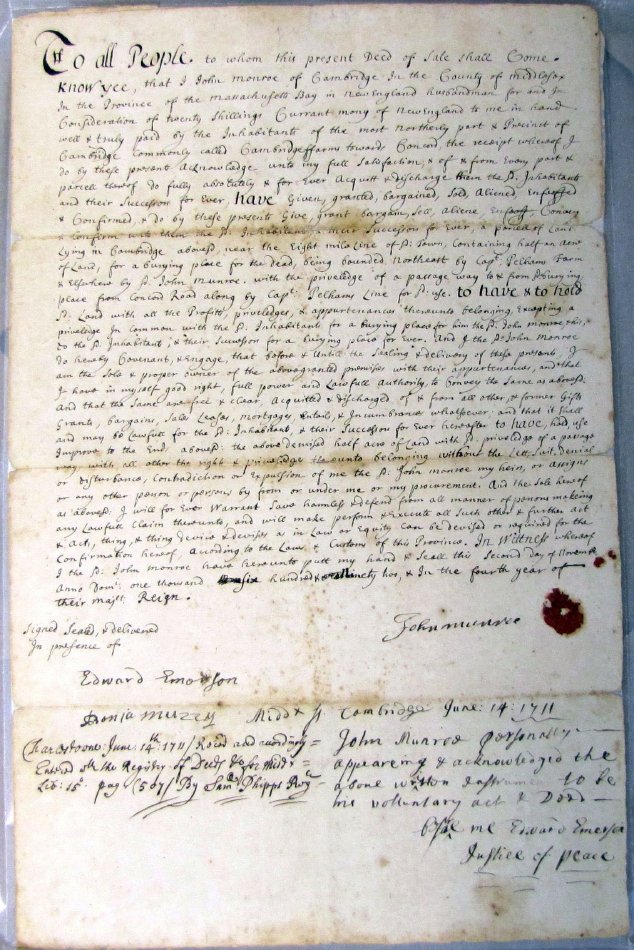 To all People to whom this present Deed of Sale shall Come.
Know yee, that I John monroe of Cambridge In the County of middlesex
In the Province of the massachusetts Bay in NewEngland husbandman for and In
Consideration of twenty Shillings Currant mony of NewEngland to me in hand
well & truly paid by the Inhabitants of the most northerly part & Precinct of
Cambridge Commonly called Cambridge ffarms towards Concord, the receipt whereof I
do by these present Acknowledge unto my full Satisfaction, & of & from Every part &
parcell thereof do fully absolutely & for Ever Acquitt & discharge them the sd. Inhabitants
and their Successors for Ever, have Given, granted, bargained, Sold, Aliened, Enfeoffed
& Confirmed, & do by these presents Give, grant bargain, Sell, aliene, Enfeoff, Convey
& Confirm unto them the sd. Inhabitants & their Successors for Ever, a parcell of Land
Lying in Cambridge abovesd. near the Eight mile Line of sd. Town, Containing half an acre
of Land, for a burying place for the Dead, being bounded, Northeast by Capt. Pelhams Farm
& Elsewhere by sd. John munroe. with the priviledge of a passage way to & from sd. burying
place from Concord Road along by Capt. Pelhams Line for sd. use. to have & to hold
sd. Land with all the Profits, priviledges, & appurtenances thereunto belonging, Excepting a
priviledge In Common with the sd. Inhabitants for a burying place for him the sd. John monroe & his,
to the sd. Inhabitants, & their Successors for a burying place for Ever. And I the sd. John monroe
do hereby Covenant, & Engage, that before & Untill the Sealing & delivery of these presents, I
am the Sole & proper owner of the abovegranted premises with their appurtenances, and that
I have in myself good right, full power and Lawfull Authority, to Convey the Same as abovesd.
And that the Same are free & clear, Acquitted & discharged of & from all other, & former Gifts
Grants, bargains, Sales Leases, mortgages Entails, & Incumbrances whatsoever: and that it shall
and may be Lawfull for the sd. Inhabitants, & their Successors for Ever hereafter to have, hold use
Improve to the End, abovesd. the above devised half acre of Land with sd. priviledge of a passage
way with all other the right & priviledges thereunto belonging without the Lett, Suit, Denial
or disturbance, Contradiction or Expulsion of me the sd. John monroe my heirs, or assigns
or any other person or persons by from or under me or my procurement. And the Sale hereof
as abovesd. I will for Ever Warrant Save harmless & defend from all manner of persons making
any Lawfull Claim thereunto, and will make perform & execute all Such other & further act
& Acts, thing, & things devise & devises as in Law or Equity Can be devised or required for the
Confirmation hereof, According to the Laws & Customs of this Province. In Witness whereof
I the sd. John monroe have hereunto putt my hand & Seall this Second day of
Anno Domi: one thousand six hundred & ninety two, & In the fourth year of
their majts. Reign.
Signed Sealed, & delivered
In presence of
John munroe
Edward Emerson
Benja muzzy
Midd x ss Cambridge June: 14: 1711
John Munroe personally
appearing & acknowledged the
above written Instrument to be
his voluntary act & Deed
Before me Edward Emerson
Justice of peace
Charlestowne: June 14th: 1711 / Recd and accordingly
Entered wth the Register of Deeds &c for Midd x
Lib: 15o pag (567) By Samll Phipps Regr